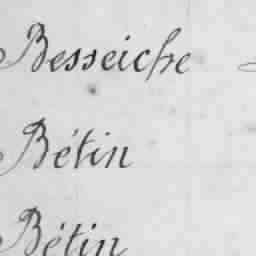 Besseiche
Bétin
Bétin